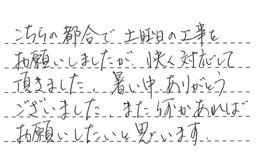 こちらの都合で土曜日の工事を
お願いしましたが、快く対応して
頂きました。暑い中、ありがとう
ございました。また何かあれば
お願いしたいと思います